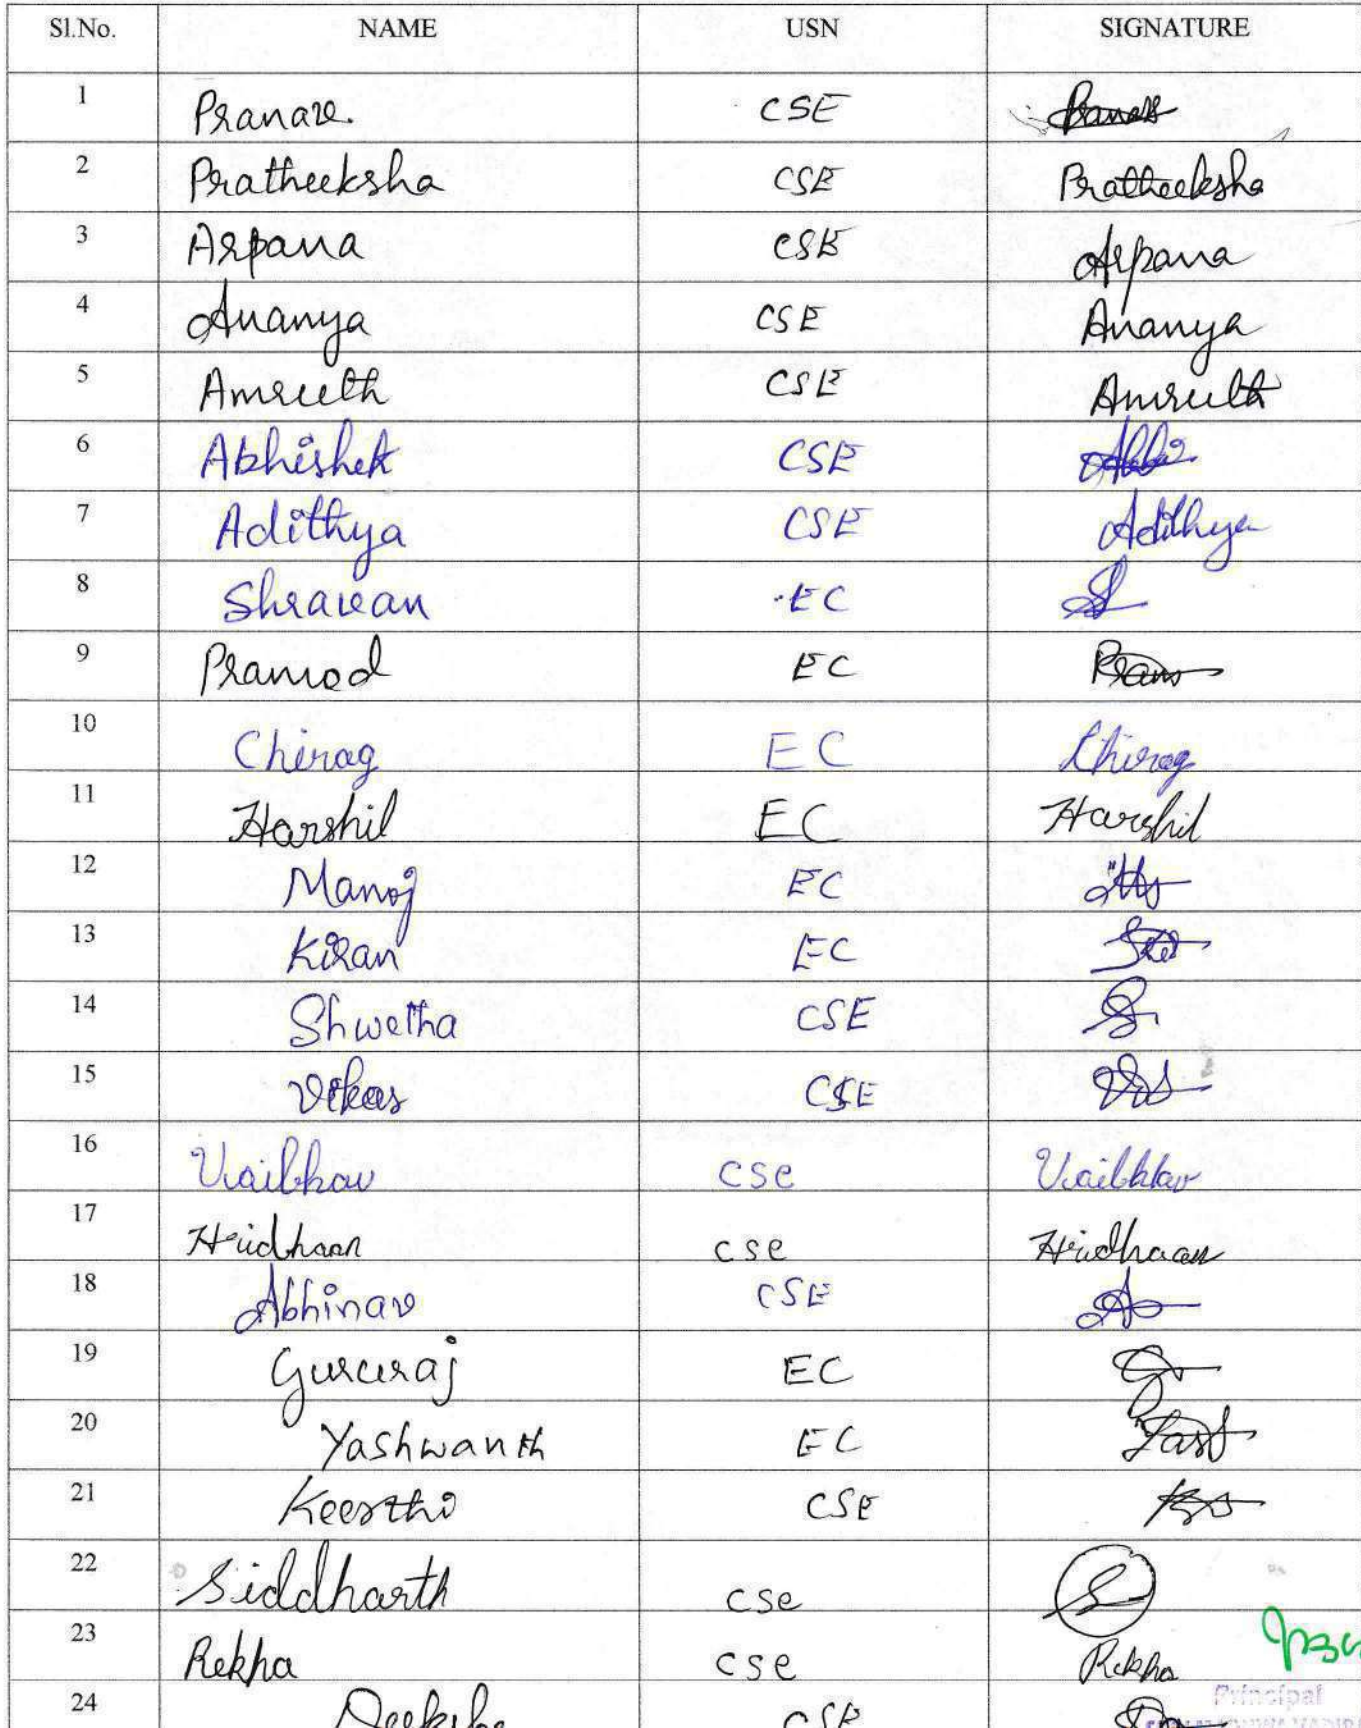 Sl.No. NAME USN SIGNATURE
1 Pranav CSE Pranav
2 Pratheeksha CSE Pratheeksha
3 Arpana CSE Arpana
4 Ananya CSE Ananya
5 Amreeth CSE Amreeth
6 Abhishek CSE
7 Adithya CSE Adithya
8 Shravan EC
9 Pramod EC Pram
10 Chirag EC Chirag
11 Harshil EC Harshil
12 Manoj EC
13 Kiran EC
14 Shwetha CSE
15 Vikas CSE
16 Vaibhav CSE Vaibhav
17 Hridhaan CSE Hridhaan
18 Abhinav CSE
19 Gururaj EC
20 Yashwanth EC
21 Keerthi CSE
22 Siddharth CSE
23 Rekha CSE Rekha
Principal
24 Deeksha CSE